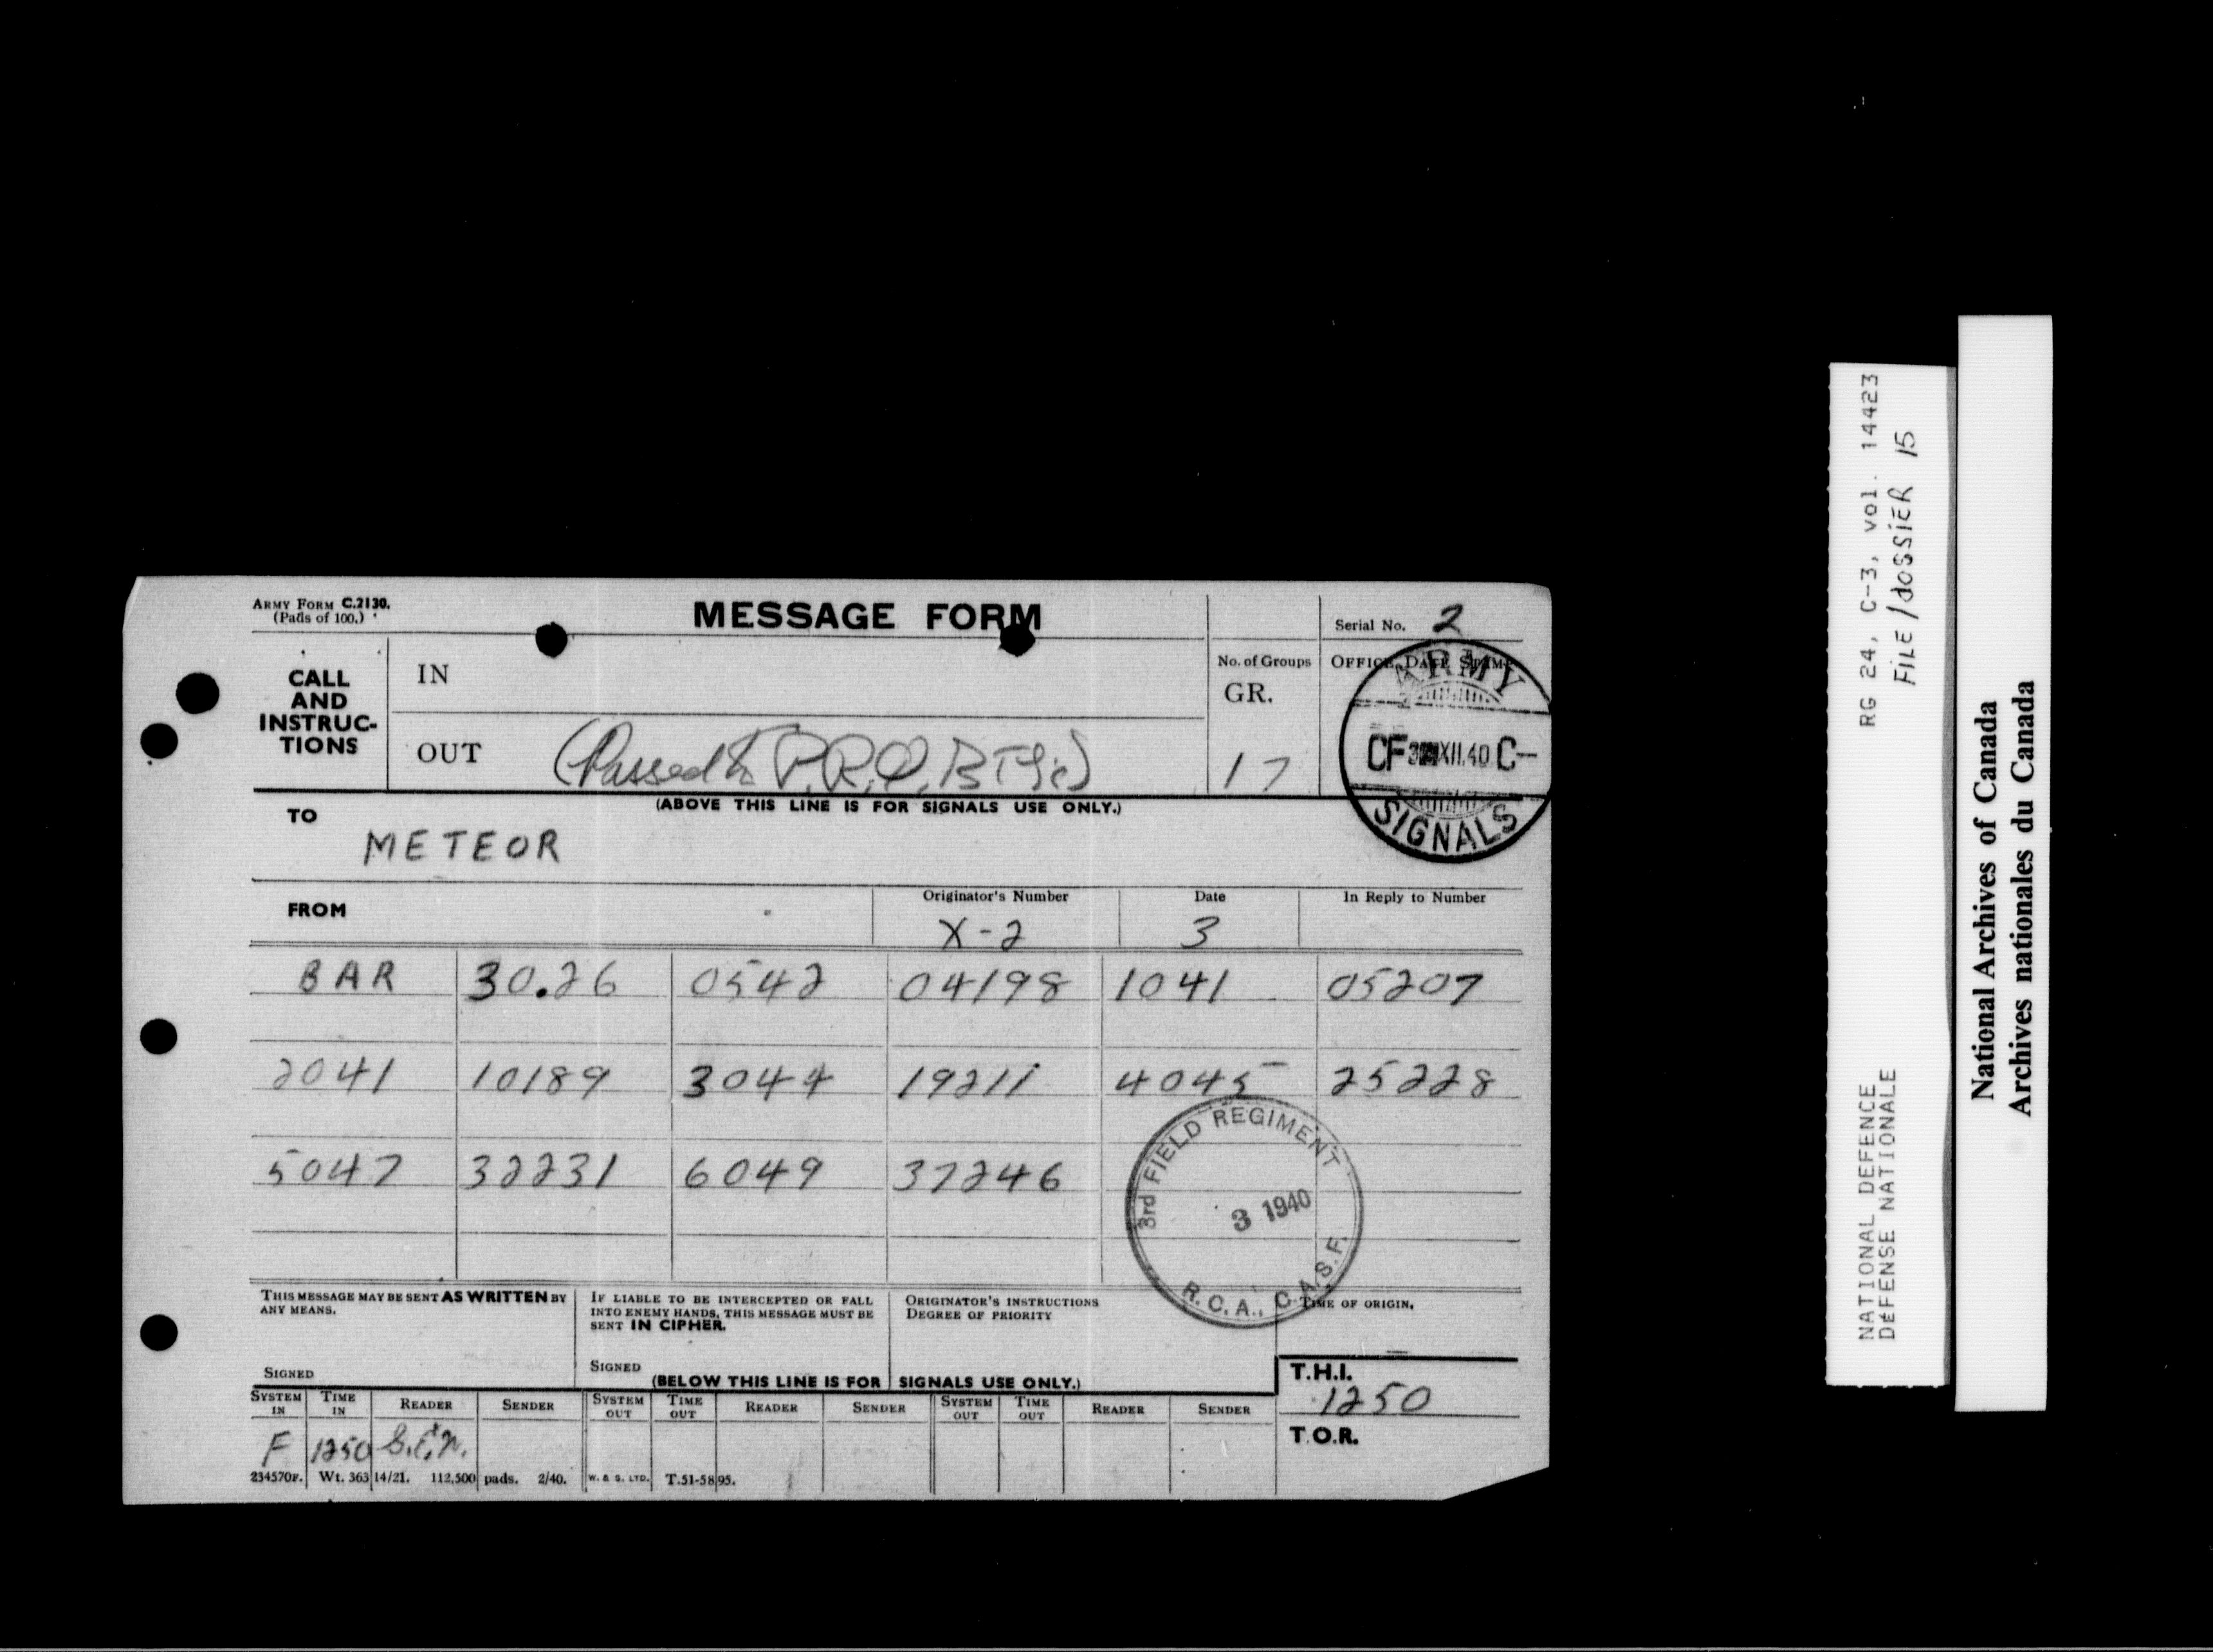 ARMY FORM C.2130.
(Pads of 100.)
MESSAGE FORM
Serial No. 2
CALL
AND
INSTRUC-
TIONS
IN
No. of Groups
GR.
OFFICE DATE STAMP
OUT
(Passed to P.R.O. Btys)
17
ARMY
CF 3 XII.40 C-
SIGNALS
(ABOVE THIS LINE IS FOR SIGNALS USE ONLY.)
TO
METEOR
FROM
Originator's Number
Date
In Reply to Number
X-2
3
BAR 30.26 0542 04198 1041 05207
2041 10189 3044 19211 4045 25228
5047 32231 6049 37246
3rd FIELD REGIMENT
3 1940
R.C.A., C.A.S.F.
THIS MESSAGE MAY BE SENT AS WRITTEN BY
ANY MEANS.
SIGNED
IF LIABLE TO BE INTERCEPTED OR FALL
INTO ENEMY HANDS, THIS MESSAGE MUST BE
SENT IN CIPHER.
SIGNED
ORIGINATOR'S INSTRUCTIONS
DEGREE OF PRIORITY
TIME OF ORIGIN.
(BELOW THIS LINE IS FOR SIGNALS USE ONLY.)
T.H.I.
1250
T.O.R.
SYSTEM IN
TIME IN
READER
SENDER
SYSTEM OUT
TIME OUT
READER
SENDER
SYSTEM OUT
TIME OUT
READER
SENDER
F 1250
234570F. Wt. 363 14/21. 112,500 pads. 2/40. W. & G. LTD. T.51-5895.
RG 24, C-3, vol. 14423
FILE/dOSSiER 15
NATIONAL DEFENCE
DÉFENSE NATIONALE
National Archives of Canada
Archives nationales du Canada